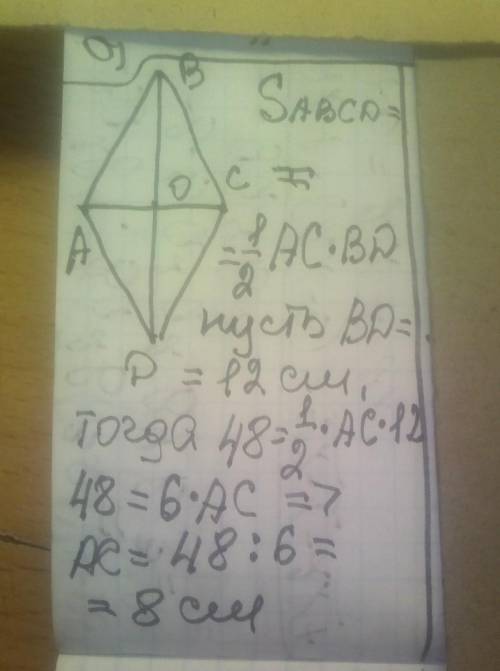 B
S ABCD =
O
C
=
A
= 1/2 AC · BD
пусть BD =
D
= 12 см,
тогда 48 = 1/2 · AC · 12
48 = 6 · AC =>
AC = 48 : 6 =
= 8 см